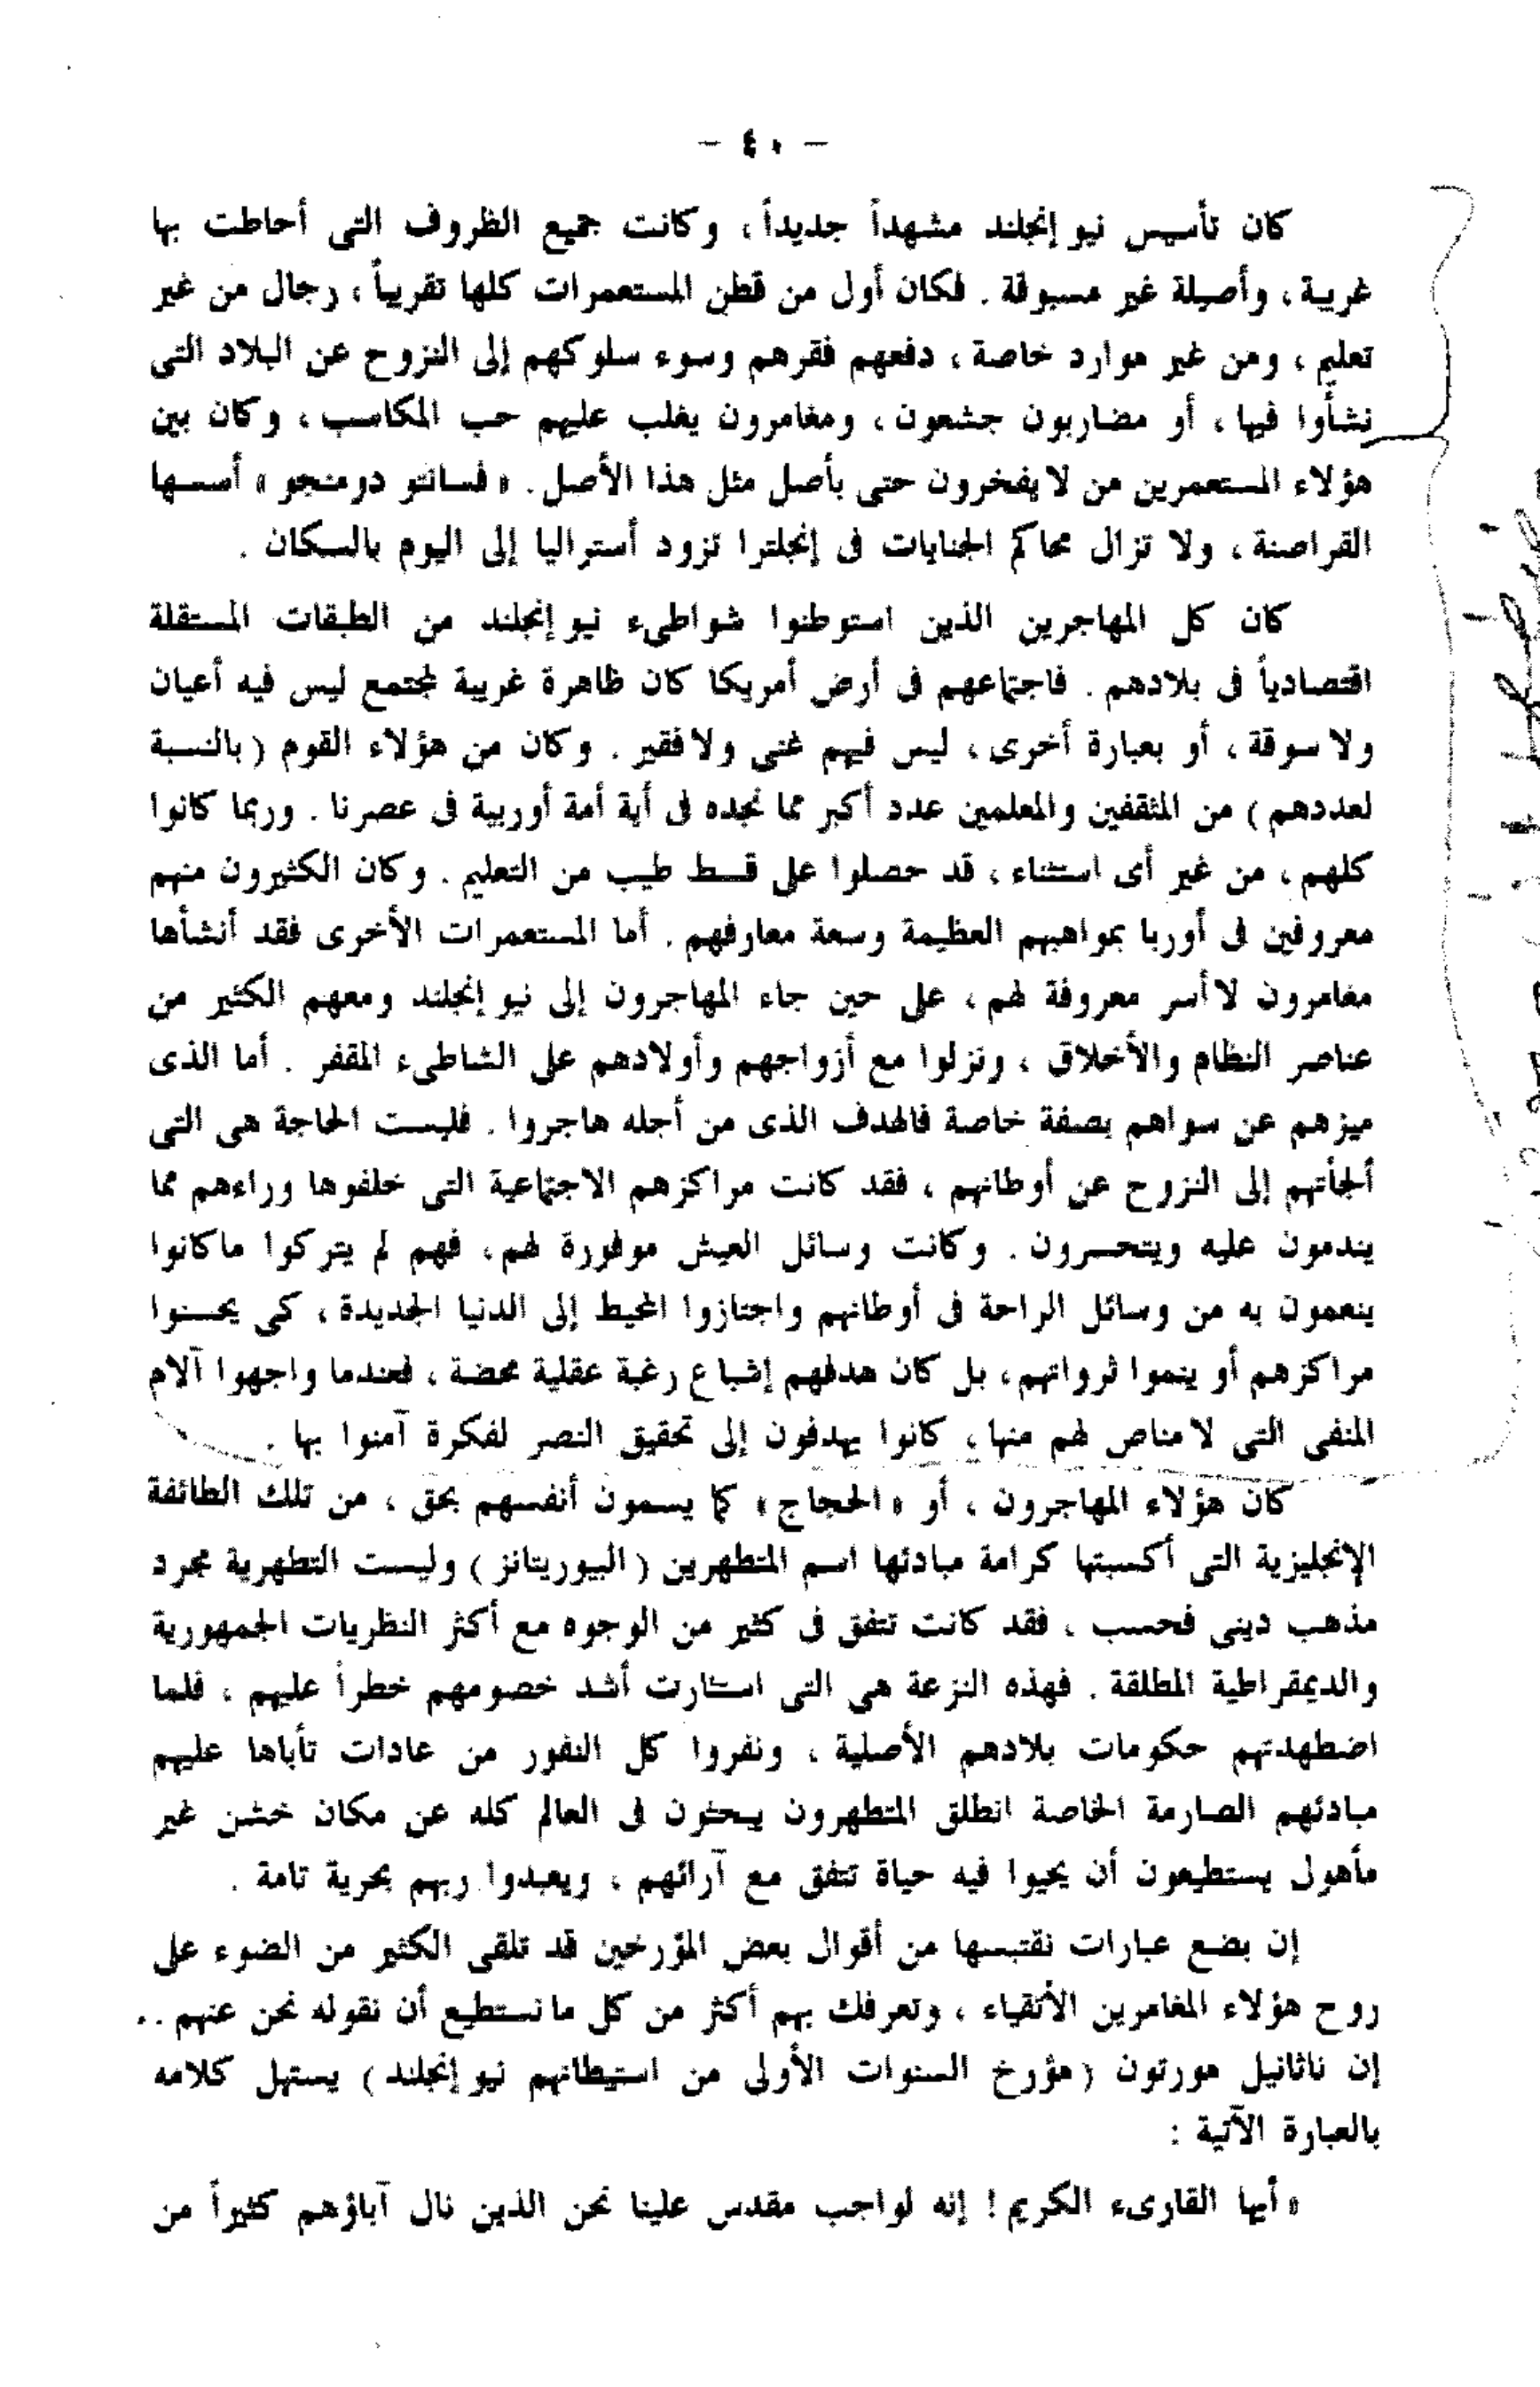 — ٤٠ —
كان تأسيس نيو إنجلند مشهداً جديداً ، وكانت جميع الظروف التى أحاطت بها
غريبة ، وأصيلة غير مسبوقة . فكان أول من قطن المستعمرات كلها تقريباً ، رجال من غير
تعليم ، ومن غير موارد خاصة ، دفعهم فقرهم وسوء سلوكهم إلى النزوح عن البلاد التى
نشأوا فيها ، أو مضاربون جشعون ، ومغامرون يغلب عليهم حب المكاسب ، وكان بين
هؤلاء المستعمرين من لا يفخرون حتى بأصل مثل هذا الأصل . « فسانتو دومنجو » أسسها
القراصنة ، ولا تزال محاكم الجنايات فى إنجلترا تزود أستراليا إلى اليوم بالسكان .
كان كل المهاجرين الذين استوطنوا شواطىء نيو إنجلند من الطبقات المستقلة
اقتصادياً فى بلادهم . فاجتماعهم فى أرض أمريكا كان ظاهرة غريبة لمجتمع ليس فيه أعيان
ولا سوقة ، أو بعبارة أخرى ، ليس فيهم غنى ولا فقير . وكان من هؤلاء القوم ( بالنسبة
لعددهم ) من المثقفين والمعلمين عدد أكبر مما نجده فى أية أمة أوربية فى عصرنا . وربما كانوا
كلهم ، من غير أى استثناء ، قد حصلوا على قسط طيب من التعليم . وكان الكثيرون منهم
معروفين فى أوربا بمواهبهم العظيمة وسعة معارفهم . أما المستعمرات الأخرى فقد أنشأها
مغامرون لا أسر معروفة لهم ، على حين جاء المهاجرون إلى نيو إنجلند ومعهم الكثير من
عناصر النظام والأخلاق ، ونزلوا مع أزواجهم وأولادهم على الشاطىء المقفر . أما الذى
ميزهم عن سواهم بصفة خاصة فالهدف الذى من أجله هاجروا . فليست الحاجة هى التى
ألجأتهم إلى النزوح عن أوطانهم ، فقد كانت مراكزهم الاجتماعية التى خلفوها وراءهم مما
يندمون عليه ويتحسرون . وكانت وسائل العيش موفورة لهم ، فهم لم يتركوا ما كانوا
ينعمون به من وسائل الراحة فى أوطانهم واجتازوا المحيط إلى الدنيا الجديدة ، كى يحسنوا
مراكزهم أو ينموا ثرواتهم ، بل كان هدفهم إشباع رغبة عقلية محضة ، فعندما واجهوا آلام
المنفى التى لا مناص لهم منها ، كانوا يهدفون إلى تحقيق النصر لفكرة آمنوا بها .
كان هؤلاء المهاجرون ، أو « الحجاج » كما يسمون أنفسهم بحق ، من تلك الطائفة
الإنجليزية التى أكسبتها كرامة مبادئها اسم المتطهرين ( البيوريتانز ) وليست التطهرية مجرد
مذهب دينى فحسب ، فقد كانت تتفق فى كثير من الوجوه مع أكثر النظريات الجمهورية
والديمقراطية المطلقة . فهذه النزعة هى التى استثارت أشد خصومهم خطراً عليهم ، فلما
اضطهدتهم حكومات بلادهم الأصلية ، ونفروا كل النفور من عادات تأباها عليهم
مبادئهم الصارمة الخاصة انطلق المتطهرون يبحثون فى العالم كله عن مكان خشن غير
مأهول يستطيعون أن يحيوا فيه حياة تتفق مع آرائهم ، ويعبدوا ربهم بحرية تامة .
إن بضع عبارات نقتبسها من أقوال بعض المؤرخين قد تلقى الكثير من الضوء على
روح هؤلاء المغامرين الأتقياء ، وتعرفك بهم أكثر من كل ما نستطيع أن نقوله نحن عنهم . .
إن ناثانيل مورتون ( مؤرخ السنوات الأولى من استيطانهم نيو إنجلند ) يستهل كلامه
بالعبارة الآتية :
« أيها القارىء الكريم ! إنه لواجب مقدس علينا نحن الذين نال آباؤهم كثيراً من